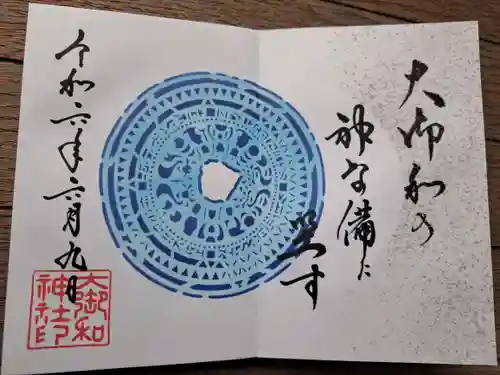 大御和の
神奈備に
坐す
令和六年六月九日
大御和
神社印